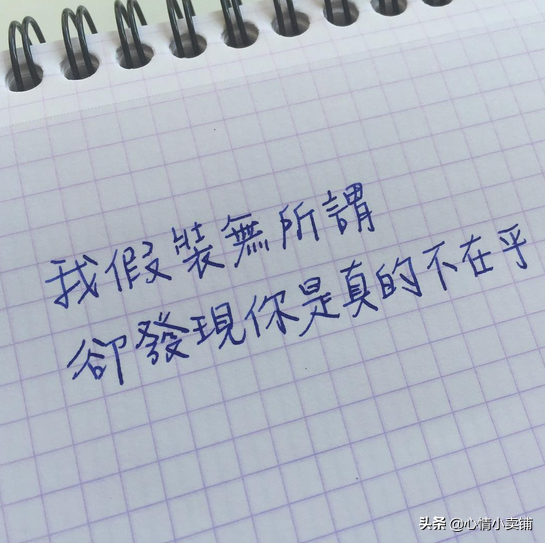 我假裝無所謂
卻發現你是真的不在乎
头条 @心情小卖铺